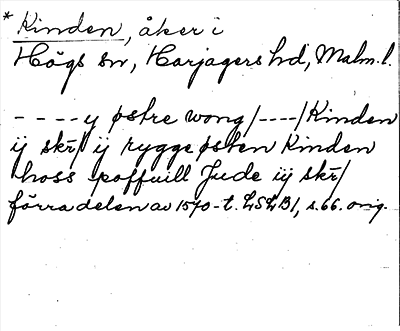 * Kinden, åker i
Högs sn, Harjagers hd, Malm.l.
- - - - y østre wong/----/Kinden
ij skr̄/ ij rygge østen Kinden
hoss poffuill Jude iij skr̄/
förra delen av 1570-t. LSLB1, s.66. orig.